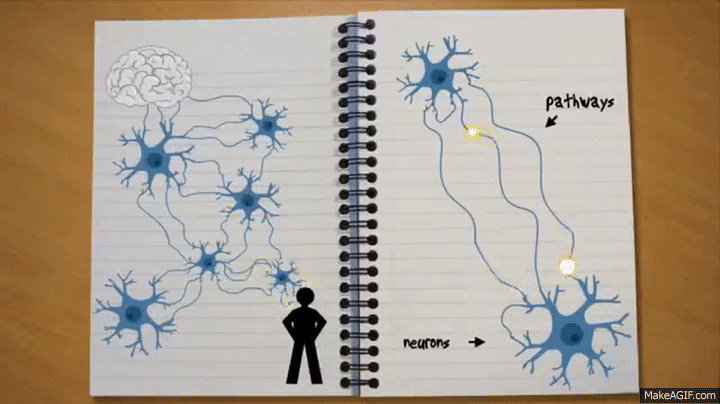 pathways
neurons
MakeAGIF.com